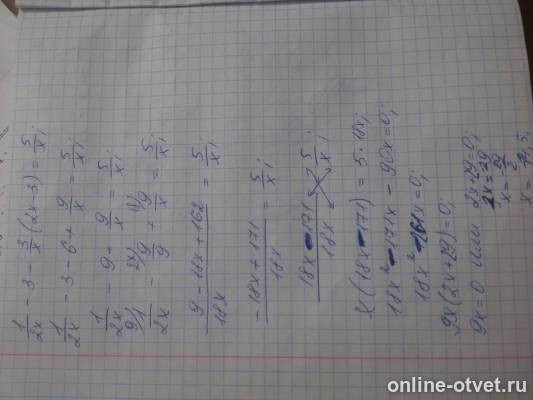 1/2x - 3 - 3/x (2x-3) = 5/x;
1/2x - 3 - 6 + 9/x = 5/x;
1/2x - 9 + 9/x = 5/x;
9/ 1/2x - 2x/ 9/9 + 9/x = 5/x;
9 - 18x + 162 / 18x = 5/x;
-18x + 171 / 18x = 5/x;
18x - 171 / 18x = 5/x;
x(18x - 171) = 5·18x;
18x² - 171x - 90x = 0;
18x² - 261x = 0;
9x(2x+29) = 0;
9x = 0 или 2x-29 = 0;
2x = -29
x = -29/2
online-otvet.ru